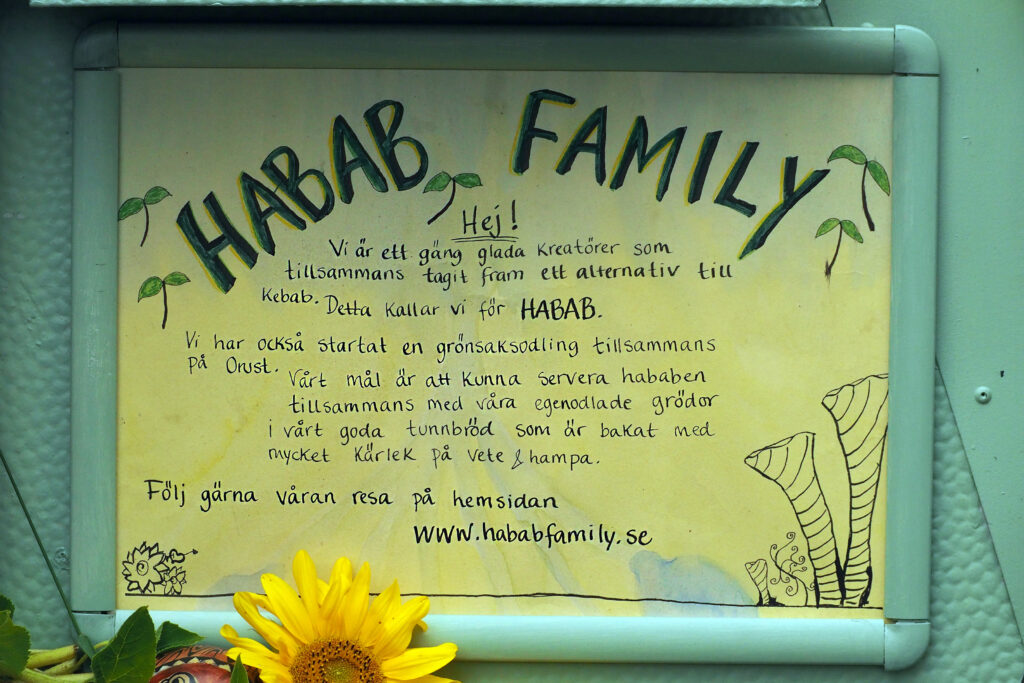 HABAB FAMILY
Hej!
Vi är ett gäng glada kreatörer som
tillsammans tagit fram ett alternativ till
kebab. Detta kallar vi för HABAB.
Vi har också startat en grönsaksodling tillsammans
på Orust.
Vårt mål är att kunna servera hababen
tillsammans med våra egenodlade grödor
i vårt goda tunnbröd som är bakat med
mycket kärlek på vete & hampa.
Följ gärna våran resa på hemsidan
www.hababfamily.se